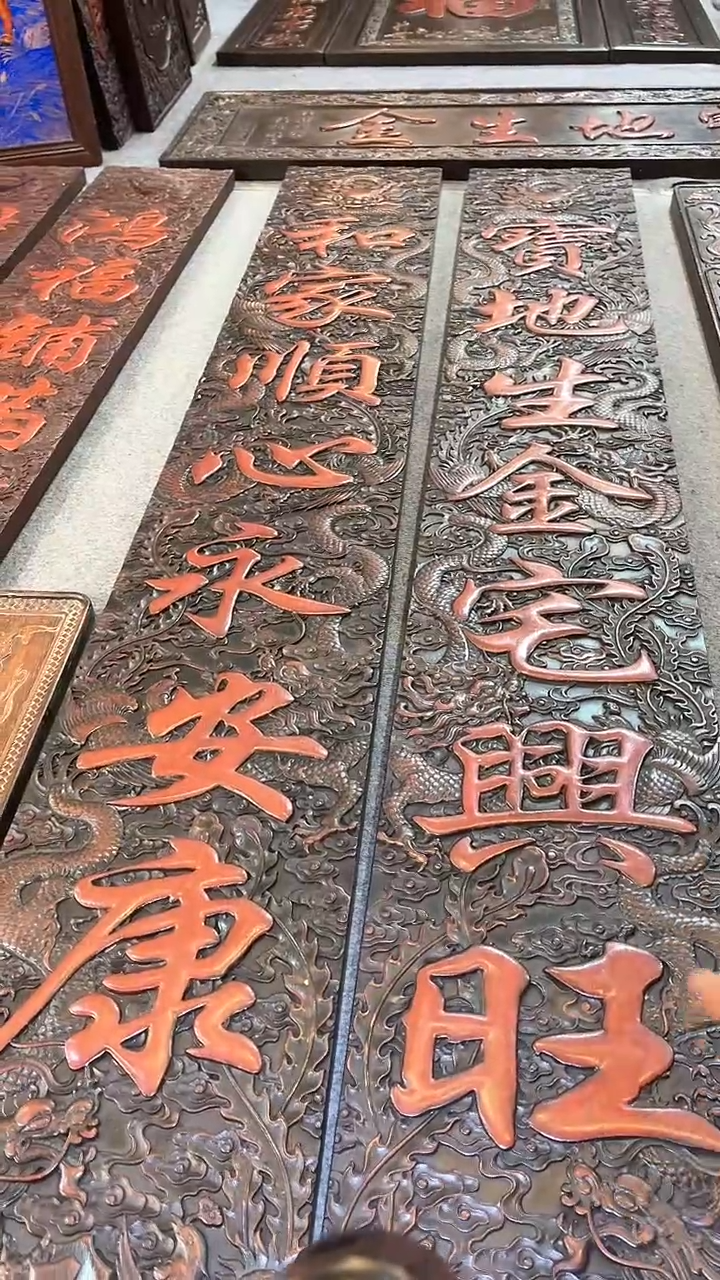 福
金生地寶
寶地生金宅興旺
和家順心永安康
鴻福鋪